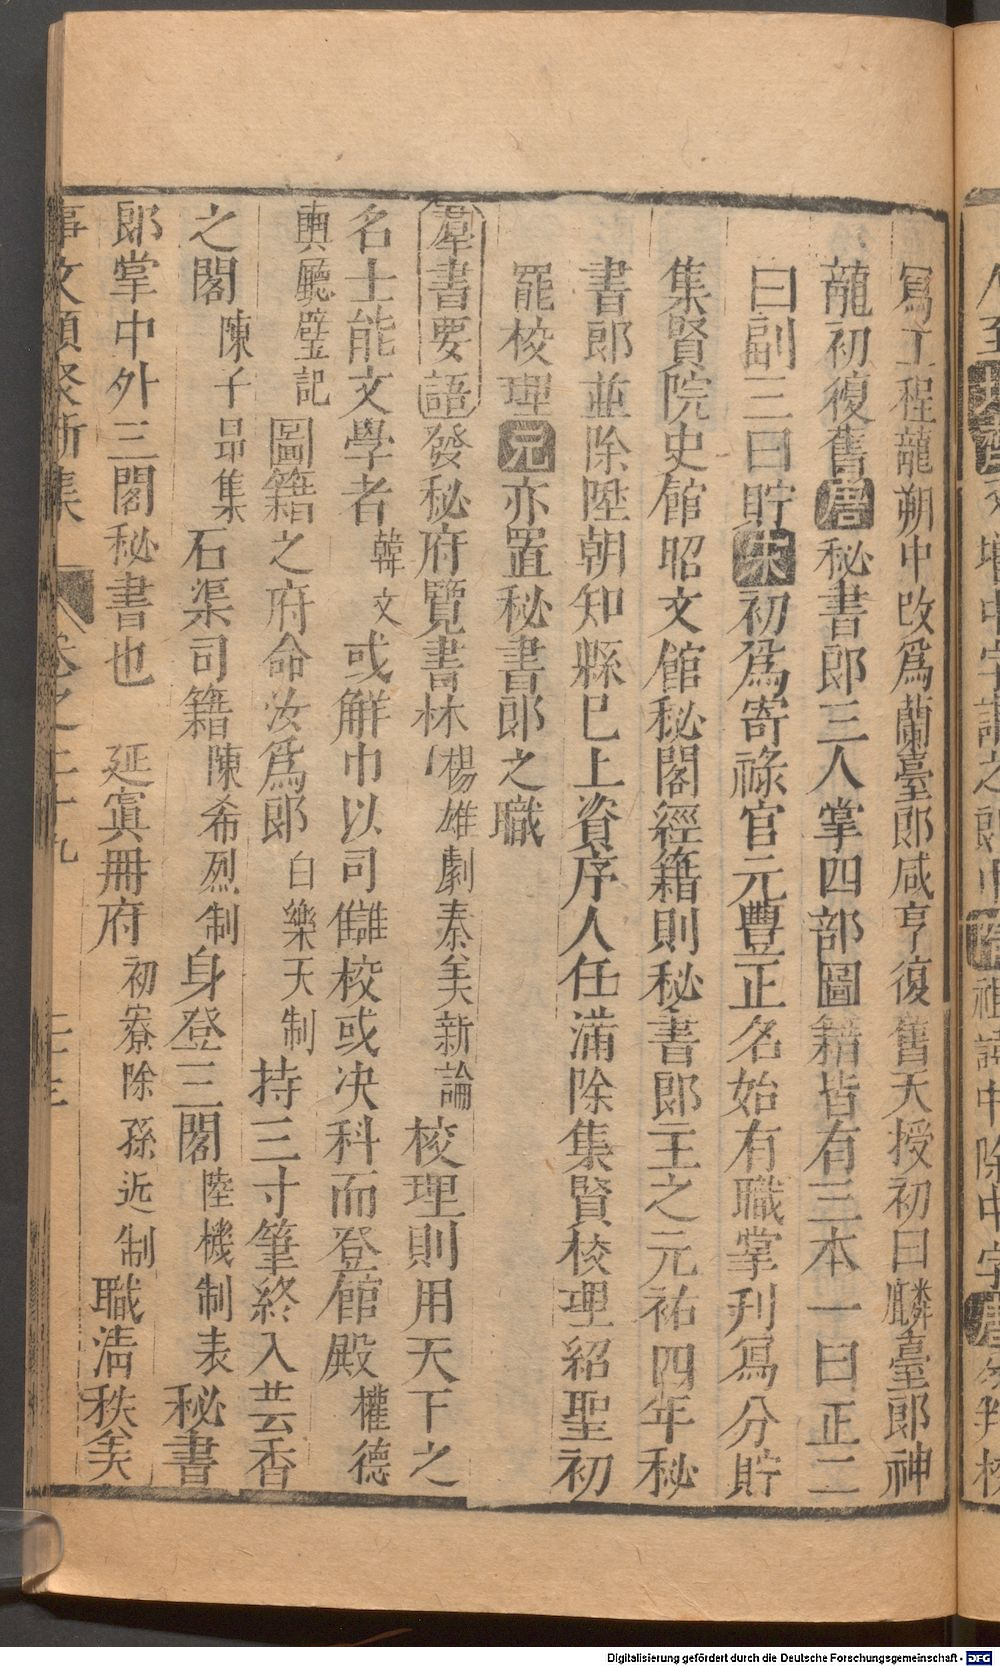 寫工程龍朔中改爲蘭臺郎咸亨復舊天授初曰麟臺郎神
龍初復舊唐秘書郎三人掌四部圖籍皆有三本一曰正二
曰副三曰貯宋初爲寄祿官元豐正名始有職掌刋寫分貯
集賢院史館昭文館秘閣經籍則秘書郎主之元祐四年秘
書郎並除陞朝知縣巳上資序人任滿除集賢校理紹聖初
罷校理元亦置秘書郎之職
羣書要語發秘府覽書林楊雄劇秦美新論校理則用天下之
名士能文學者韓文或解巾以司讎校或决科而登館殿權德
輿廳壁記圖籍之府命汝爲郎白樂天制持三寸筆終入芸香
之閣陳子昂集石渠司籍陳希烈制身登三閣陸機制表秘書
郎掌中外三閣秘書也延寘冊府初寮除孫近制職淸秩美
事文類聚新集 卷之二十九 二十三
Digitalisierung gefördert durch die Deutsche Forschungsgemeinschaft - DFG